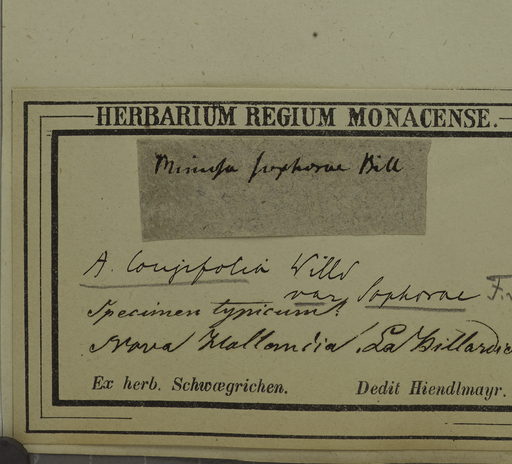 HERBARIUM REGIUM MONACENSE.
Mimosa sophorae Bill
A. longifolia Willd
var Sophorae F.
Specimen typicum!
Nova Hollandia. La Billardie
Ex herb. Schwægrichen. Dedit Hiendlmayr.